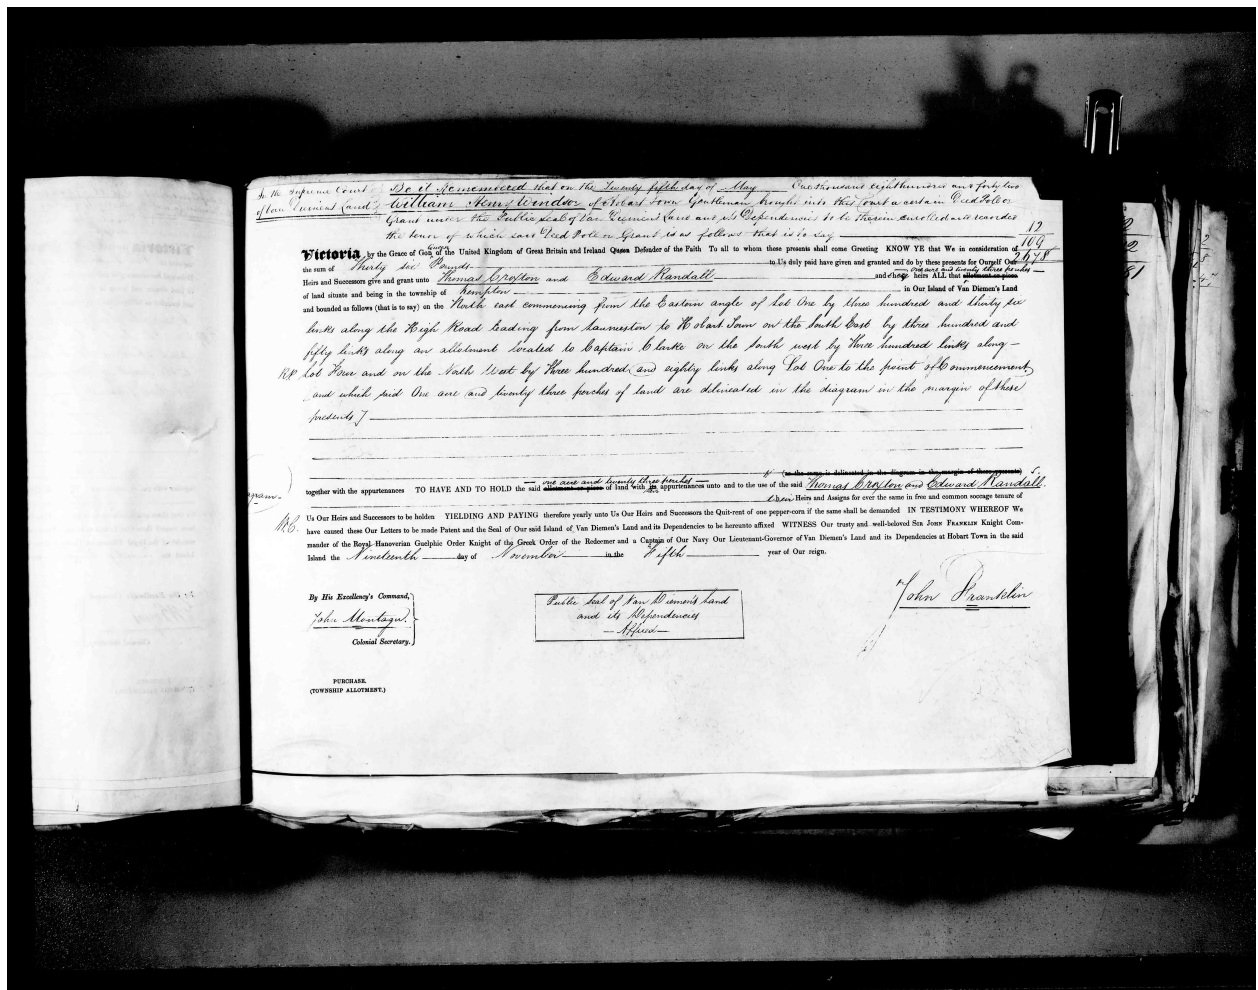 In the Supreme Court of Van Diemens Land
Be it Remembered that on the Twenty fifth day of May One thousand eight hundred and forty two
William Henry Windsor of Hobart Town Gentleman brought into this Court a certain Deed Poll or
Grant under the Public Seal of Van Diemens Land and its Dependencies to be therein enrolled and recorded
the tenor of which said Deed Poll or Grant is as follows that is to say
12
109
2678
Victoria by the Grace of God Queen of the United Kingdom of Great Britain and Ireland Queen Defender of the Faith To all to whom these presents shall come Greeting KNOW YE that We in consideration of
the sum of Thirty six Pounds to Us duly paid have given and granted and do by these presents for Ourself Our
Heirs and Successors give and grant unto Thomas Croxton and Edward Randall and their heirs ALL that one acre and twenty three perches allotment or piece
of land situate and being in the township of Kempton in Our Island of Van Diemen's Land
and bounded as follows (that is to say) on the North east commencing from the Eastern angle of Lot One by three hundred and thirty six
links along the High Road leading from Launceston to Hobart Town on the South East by three hundred and
fifty links along an allotment located to Captain Clarke on the South west by Three hundred links along
Lot Four and on the North West by Three hundred and eighty links along Lot One to the point of Commencement
and which said One acre and twenty three perches of land are delineated in the diagram in the margin of these
presents
(as the same is delineated in the diagram in the margin of these presents)
together with the appurtenances TO HAVE AND TO HOLD the said one acre and twenty three perches allotment or piece of land with its appurtenances unto and to the use of the said Thomas Croxton and Edward Randall
their Heirs and Assigns for ever the same in free and common soccage tenure of
Us Our Heirs and Successors to be holden YIELDING AND PAYING therefore yearly unto Us Our Heirs and Successors the Quit-rent of one pepper-corn if the same shall be demanded IN TESTIMONY WHEREOF We
have caused these Our Letters to be made Patent and the Seal of Our said Island of Van Diemen's Land and its Dependencies to be hereunto affixed WITNESS Our trusty and well-beloved SIR JOHN FRANKLIN Knight Com-
mander of the Royal Hanoverian Guelphic Order Knight of the Greek Order of the Redeemer and a Captain of Our Navy Our Lieutenant-Governor of Van Diemen's Land and its Dependencies at Hobart Town in the said
Island the Nineteenth day of November in the Fifth year of Our reign.
By His Excellency's Command,
John Montagu
Colonial Secretary.
Public Seal of Van Diemens Land
and its Dependencies
Affixed
John Franklin
PURCHASE.
(TOWNSHIP ALLOTMENT.)